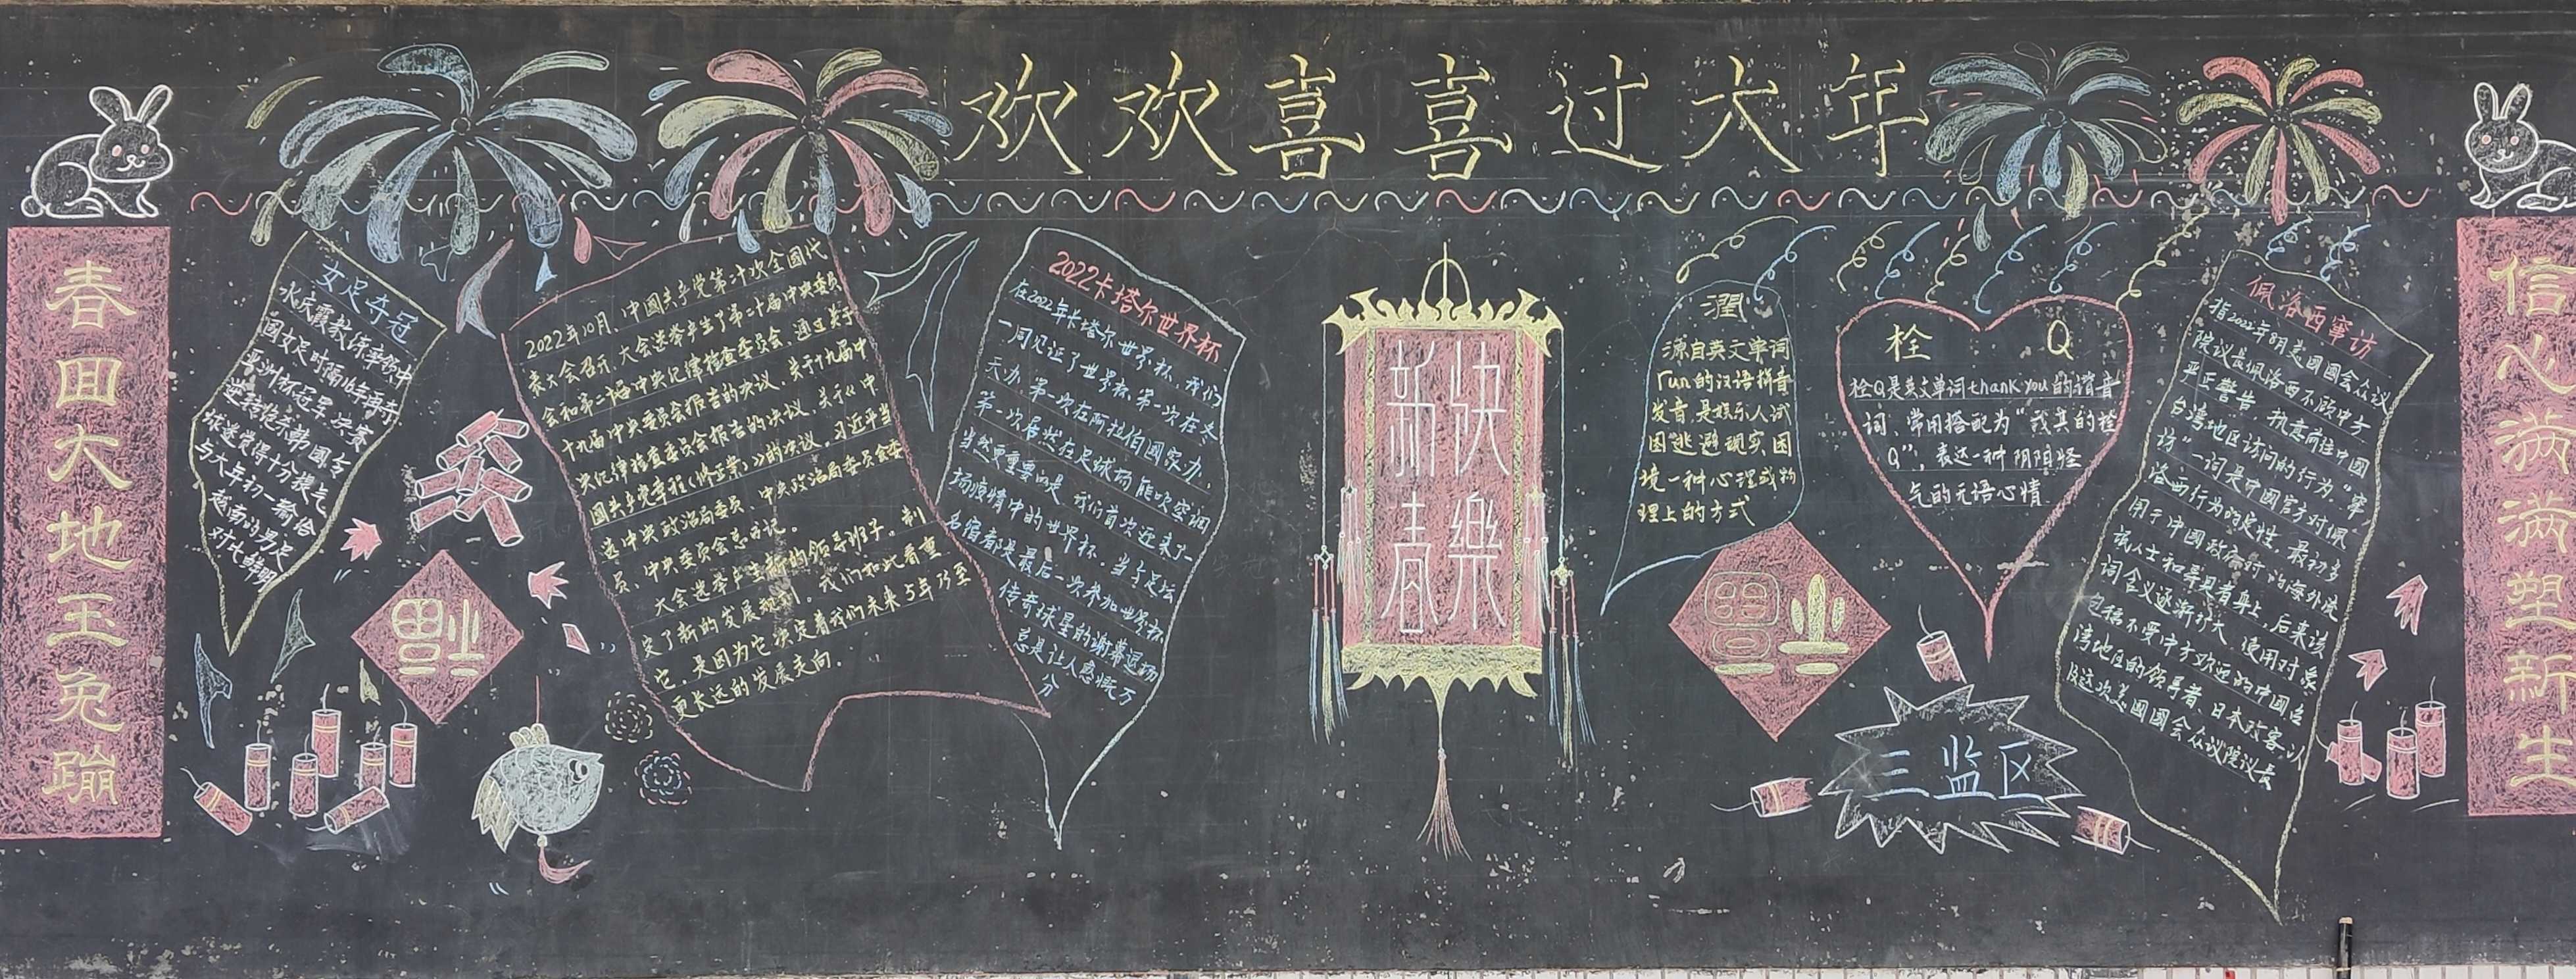 欢欢喜喜过大年
春回大地玉兔蹦
女足夺冠
水庆霞教练率领中
国女足时隔16年再夺
亚洲杯冠军,决赛
逆转绝杀韩国女
球迷觉得十分提气
与大年初一输给
越南的男足
对比鲜明
2022年10月、中國共产党第二十次全國代
表大会召开、大会选举产生了第二十届中央委员
会和第二十届中央纪律检查委员会、通过关于
十九届中央委员会报告的决议、关于十九届中
央纪律检查委员会报告的决议、关于《中
國共产党章程(修正案)》的决议、习近平当
选中央政治局委员、中央政治局委员会委
员、中央委员会总书记。
大会选举产生新的领导班子。制
定了新的发展规划。我们如此看重
它,是因为它决定着我们未来5年乃至
更长远的发展走向。
2022卡塔尔世界杯
在2022年卡塔尔世界杯、我们
一同见证了世界杯第一次在冬
天办、第一次在阿拉伯國家办、
第一次居然在足球场能吹空调
当然更重要的是、我们首次迎来了一
场疫情中的世界杯、当于足坛
名宿都是最后一次参加世界杯
传奇球星的谢幕退场
总是让人感慨万
分
新春
快樂
福
潤
源自英文单词
run的汉语拼音
发音,是娱乐人试
图逃避现实困
境一种心理或物
理上的方式
福
栓 Q
栓Q是英文单词thank you的谐音
词、常用搭配为“我真的栓
Q”,表达一种阴阳怪
气的无语心情
三监区
佩洛西窜访
指2022年8月美国國会众议
院议长佩洛西不顾中方
严正警告、执意前往中國
台湾地区访问的行为“窜
访”一词是中國官方对佩
洛西行为的定性,最初多
用于中國政府对的海外流
词含义逐渐扩大,适用对象
包括不受中方欢迎的中國台
湾地区的领导者、日本政客以
及这次美国國会众议院议长
信心满满塑新生